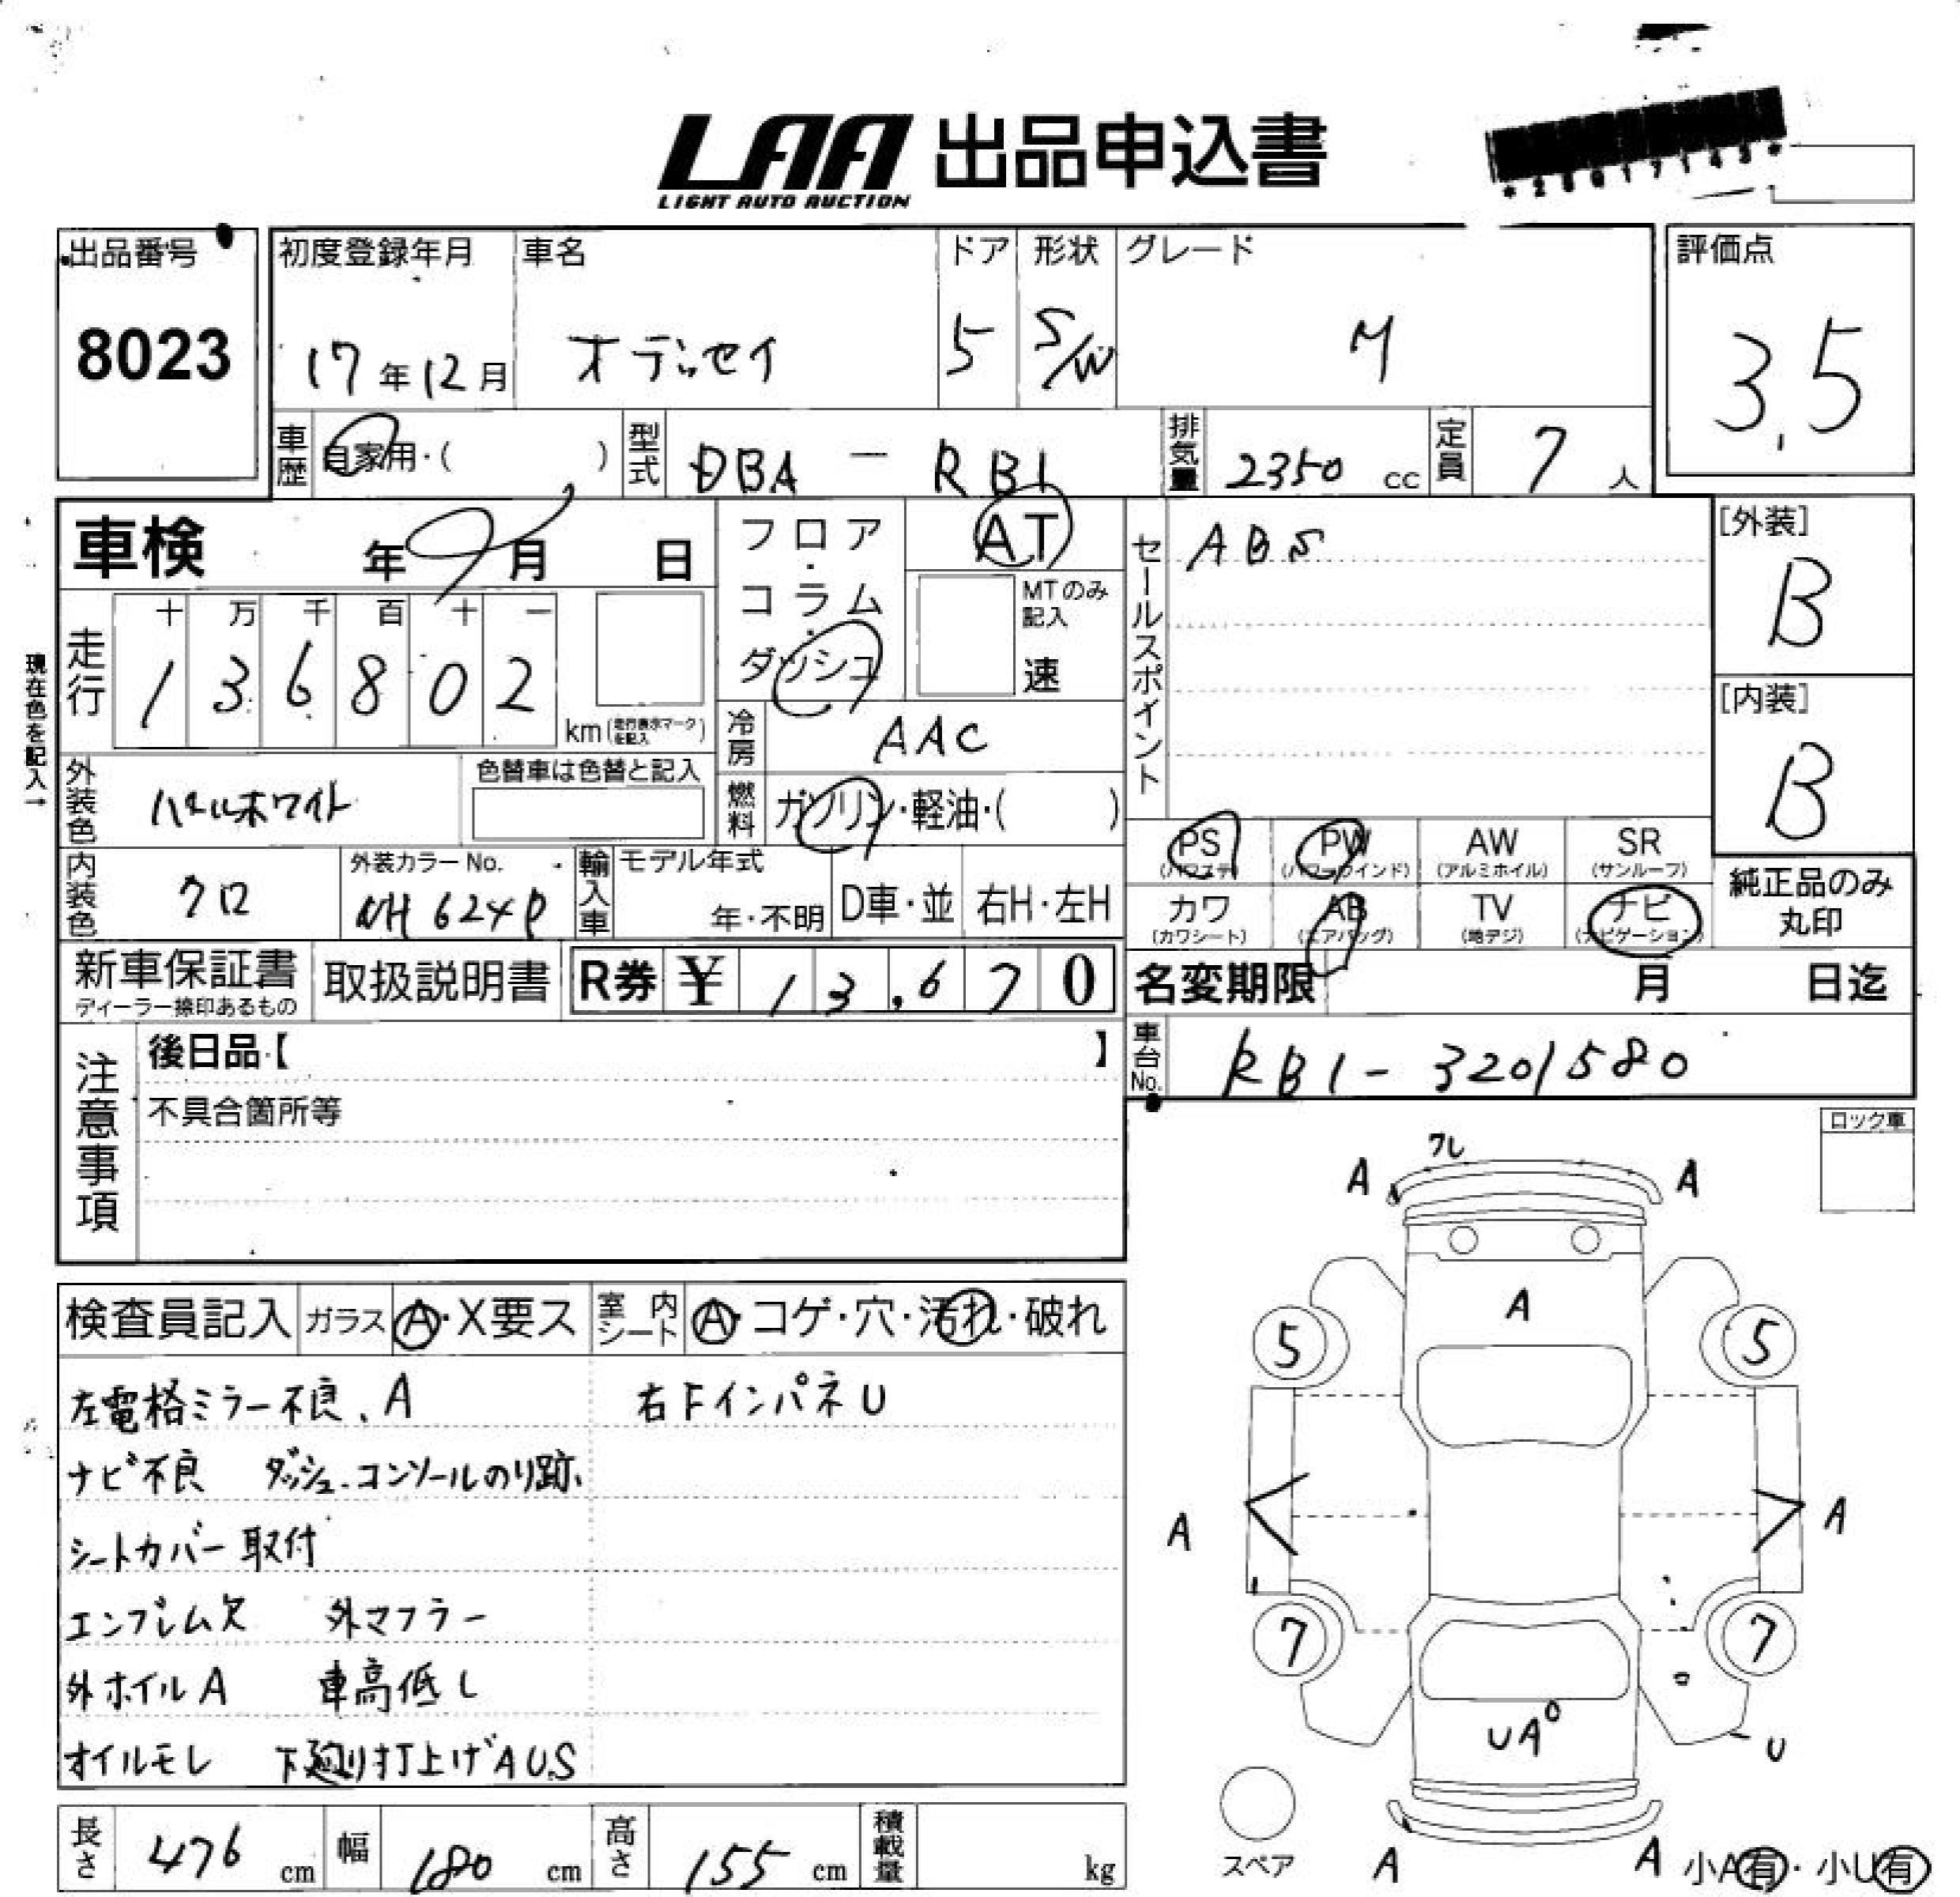 LAA 出品申込書
LIGHT AUTO AUCTION
*25017143*
出品番号
8023
初度登録年月
17年12月
車名
オデッセイ
ドア
5
形状
S/W
グレード
M
評価点
3.5
車歴
自家用・( )
型式
DBA - RB1
排気量
2350 cc
定員
7 人
車検
年 月 日
フロア・コラム・ダッシュ
AT
MTのみ記入
速
セールスポイント
ABS
[外装]
B
[内装]
B
現在色を記入→
走行
十 万 千 百 十 一
1 3 6 8 0 2
km(走行表示マークを記入)
冷房
AAC
外装色
パールホワイト
色替車は色替と記入
燃料
ガソリン・軽油・( )
内装色
クロ
外装カラーNo.
NH624P
輸入車
モデル年式
年・不明
D車・並
右H・左H
PS
(パワステ)
PW
(パワーウインド)
AW
(アルミホイル)
SR
(サンルーフ)
カワ
(カワシート)
AB
(エアバッグ)
TV
(地デジ)
ナビ
(ナビゲーション)
純正品のみ
丸印
新車保証書
ディーラー捺印あるもの
取扱説明書
R券 ¥ 13,670
名変期限 月 日迄
車台No.
RB1-3201580
注意事項
後日品【 】
不具合箇所等
ロック車
ワレ
A A
A
5 5
A A
7 7
UA
U
スペア
A A
小A有・小U有
検査員記入
ガラス
A・X要ス
室内シート
A・コゲ・穴・汚れ・破れ
左電格ミラー不良、A
右Fインパネ U
ナビ不良 ダッシュ.コンソールのり跡
シートカバー取付
エンブレム欠 外マフラー
外ホイルA 車高低し
オイルモレ 下廻り打上げAUS
長さ 476 cm
幅 180 cm
高さ 155 cm
積載量 kg